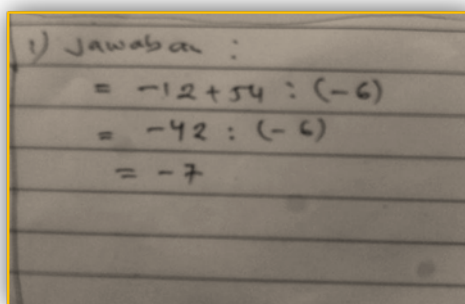 1) Jawaban :
= -12 + 54 : (-6)
= -42 : (-6)
= -7